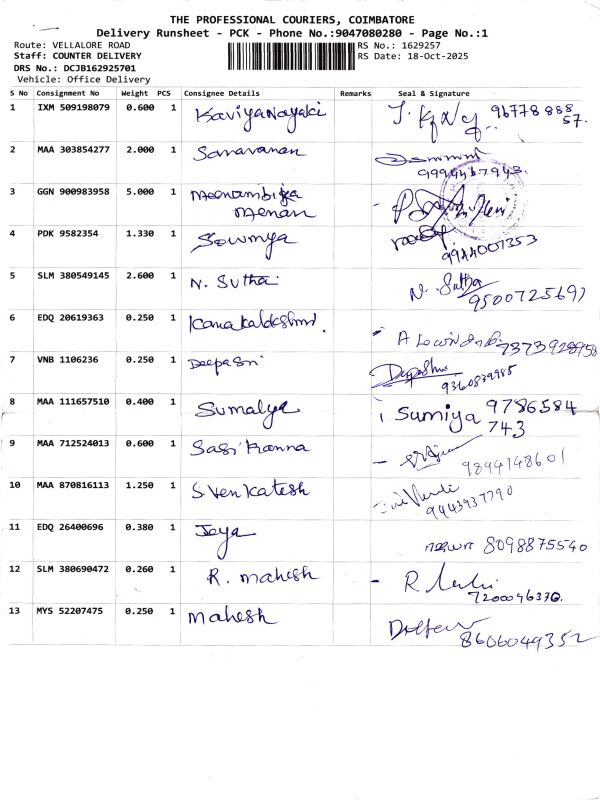 THE PROFESSIONAL COURIERS, COIMBATORE
Delivery Runsheet - PCK - Phone No.:9047080280 - Page No.:1
Route: VELLALORE ROAD
RS No.: 1629257
Staff: COUNTER DELIVERY
RS Date: 18-Oct-2025
DRS No.: DCJB162925701
Vehicle: Office Delivery
S No Consignment No Weight PCS Consignee Details Remarks Seal & Signature
1 IXM 509198079 0.600 1 Kaviyanayaki 96778 888 57.
2 MAA 303854277 2.000 1 Saravanan 9994467943.
3 GGN 900983958 5.000 1 Meenambiga
Menan
4 PDK 9582354 1.330 1 Sowmya 9944007353
5 SLM 380549145 2.600 1 N. Sutha N. Sutha
9500725697
6 EDQ 20619363 0.250 1 7373928958
7 VNB 1106236 0.250 1 DeepaSri
9360839985
8 MAA 111657510 0.400 1 Sumalya Sumiya 9786584
743
9 MAA 712524013 0.600 1 Sasi Kanna 9894148601
10 MAA 870816113 1.250 1 S. Venkatesh
9443937790
11 EDQ 26400696 0.380 1 Jeya 8098875540
12 SLM 380690472 0.260 1 R. mahesh
7200046376.
13 MYS 52207475 0.250 1 mahesh
8606049352